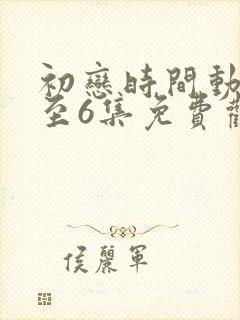 初戀時間動
至6集免費觀
侯麗軍